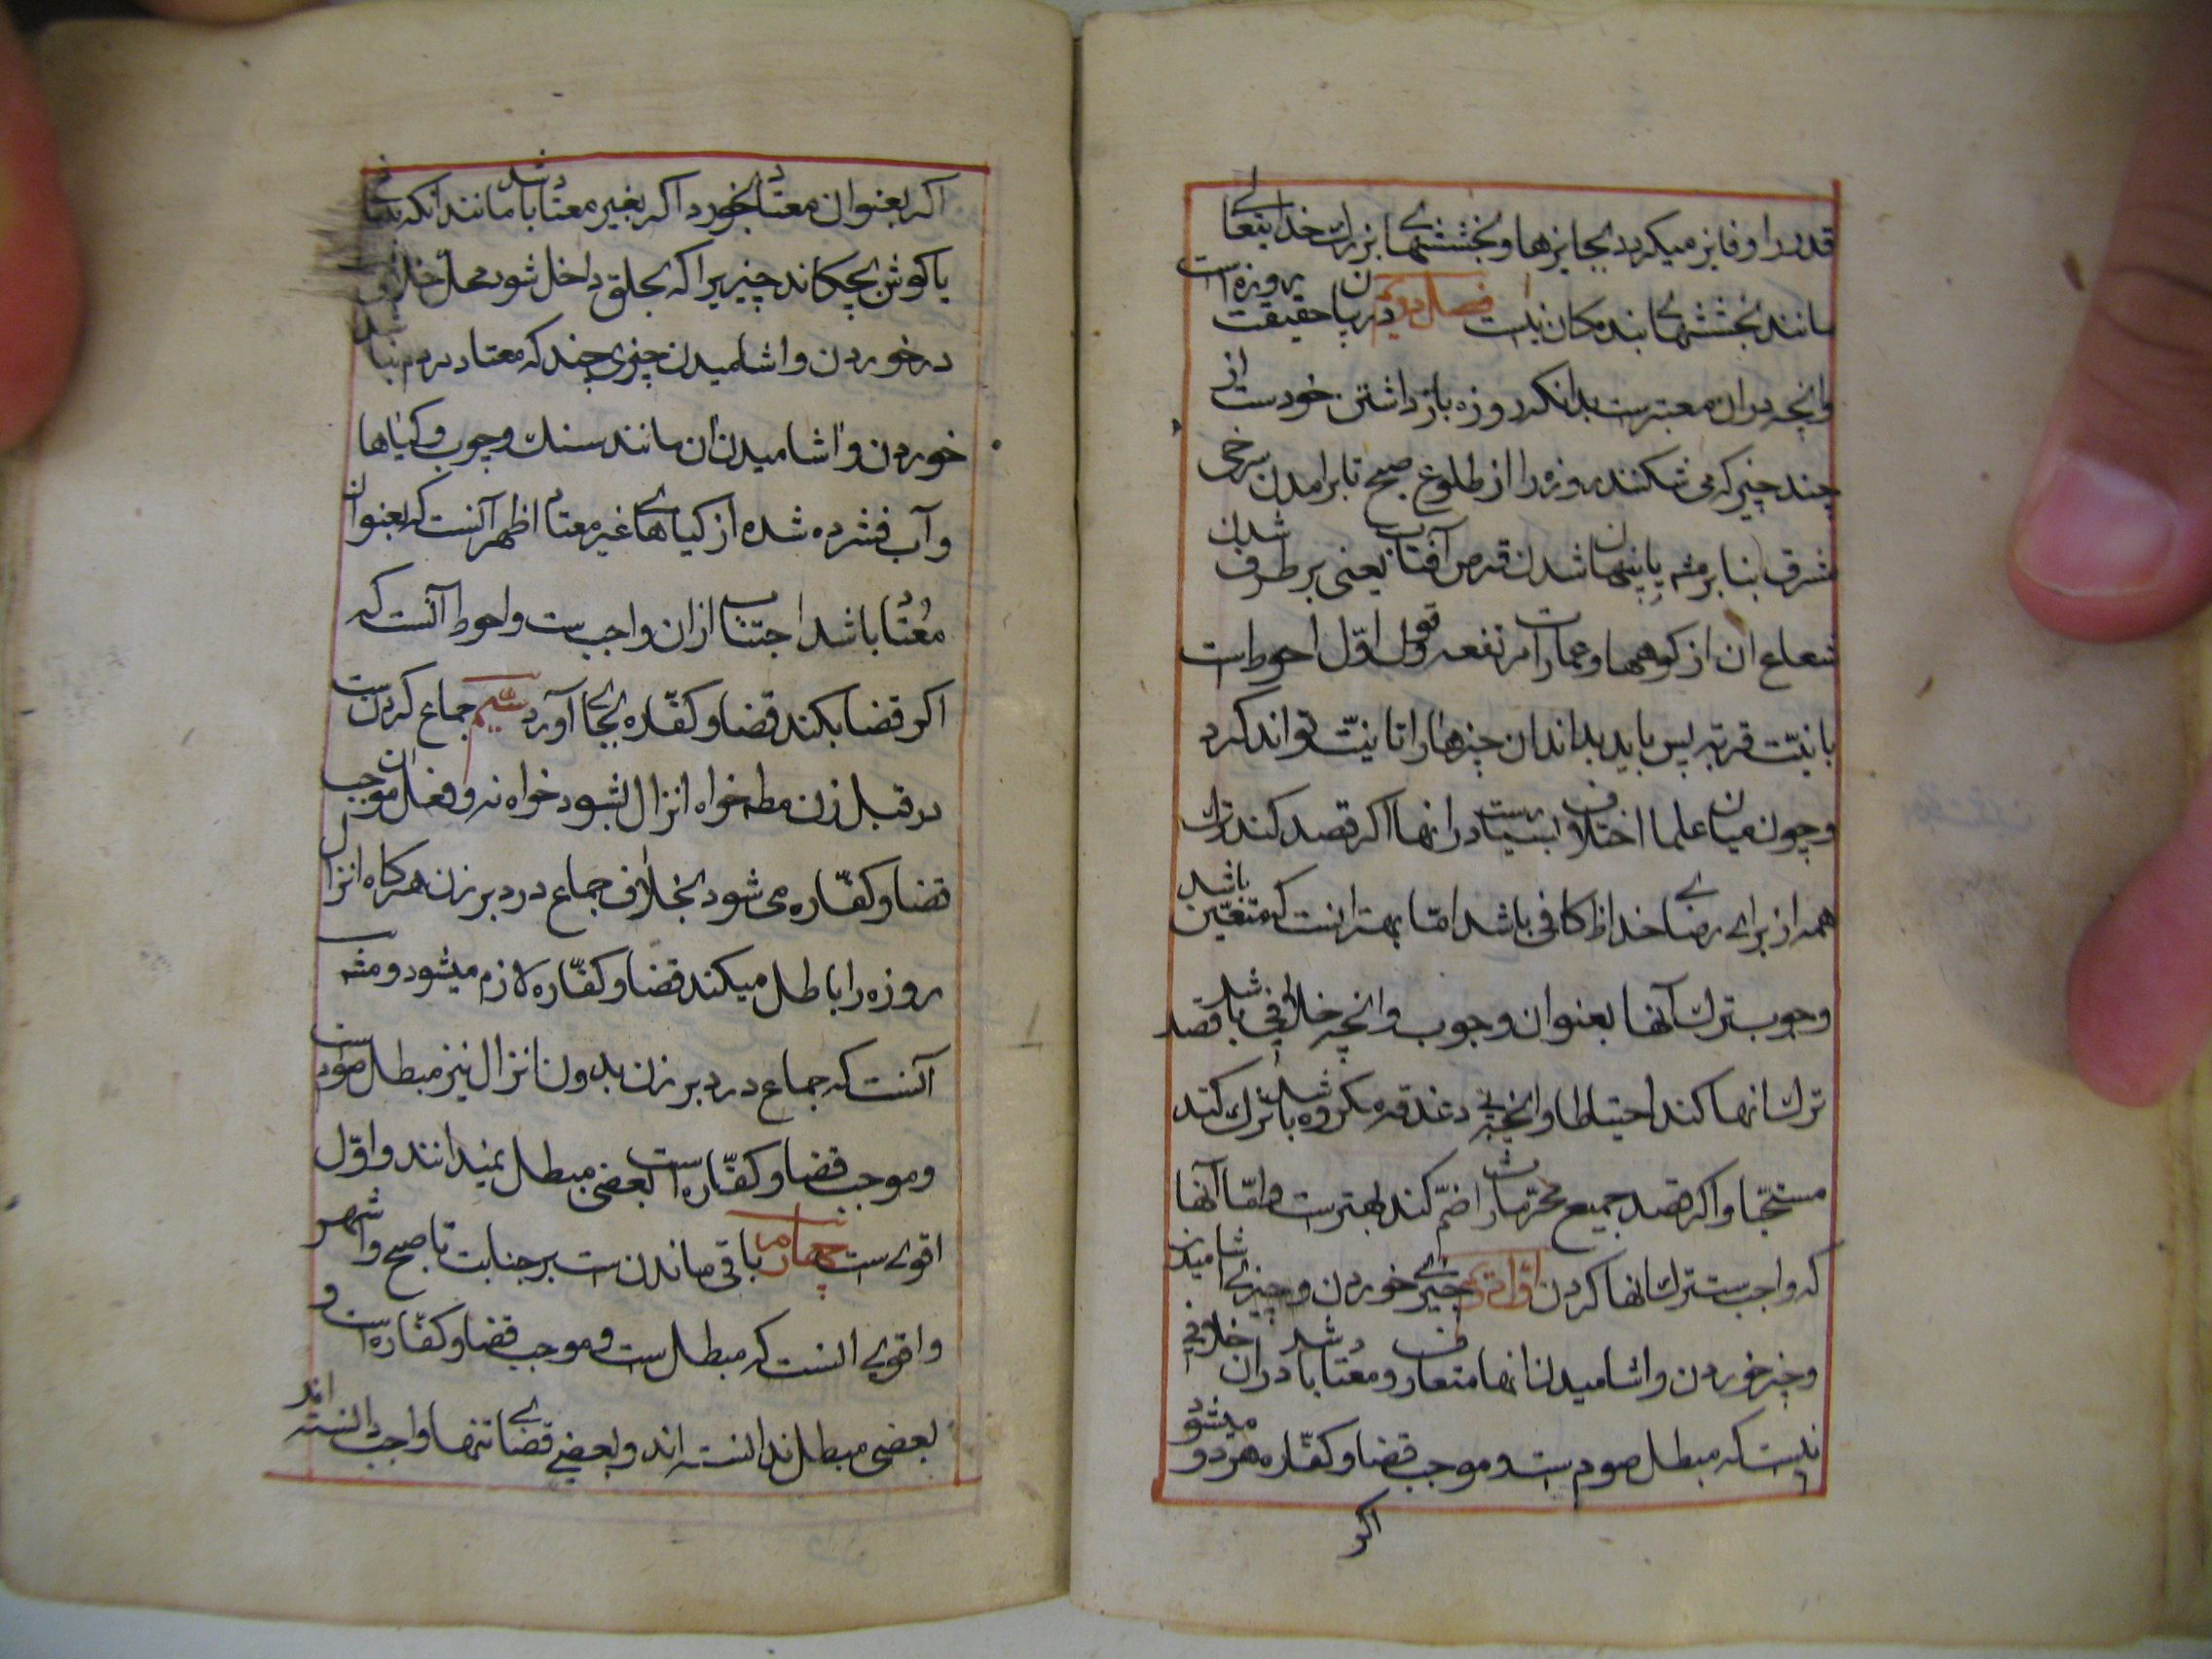 قدر را و فایز میکردد بجایزها و بخششهای بزرك خدایتعالی
مانند بخششهای بندمکان نیست فصل دویم در بیان حقیقت روزه است
وانچه دران معتبرست بدانکه روزه بازداشتن خودست از
چند چیز که می شکنند روزه را از طلوع صبح تا برامدن سرخی
مشرق بنا بر مشهور یا پنهان شدن قرص آفتاب یعنی بر طرف شدن
شعاع ان از کوهها و عمارات مرتفعه و قول اوّل احوط است
با نیّت قربة پس باید بداند ان چیزها را تا نیّت تواند کرد
و چون میان علما اختلاف بسیارست در انها اکر قصد کند ترك
همه از برای رضای خدا ظ کافی باشد امّا بهتر انست که متعیّن باشد
وجوب ترك آنها بعنوان وجوب وانچه خلافی باشد قصد
ترك انها کند احتیاطا وانچه بی دغدقه مکروه باشد ترك کند
مستحبّا و اکر قصد جمیع محرّمات را ضمّ کند بهترست و امّا آنها
که واجب ست ترك انها کردن اوّل و دویم چیزی خوردن و چیزی اشامیدن
و چیز خوردن و اشامیدن انها متعارف و معتاد باشد دران خلافی
نیست که مبطل صوم ست و موجب قضا و کفّاره هر دو میشود
اکر
اکر بعنوان معتاد بخورد و اکر بغیر معتاد باشد مانند انکه
یا کوش بچکاند چیزیرا که بحلق داخل شود محل خلاف
در خوردن و اشامیدن چیزی چند که معتاد مردم نباشد
خوردن و اشامیدن ان مانند سنك و چوب و کیاها
و آب فشرده شده از کیاهای غیر معتاد اظهر آنست که بعنوان
مُعْتاد باشد اجتناب ازان واجب ست و احوط آنست که
اکر قضا بکند قضا و کفّاره بجای آورد سیّم جماع کردن ست
در قبل زن مطه خواه انزال بشود خواه نه و فعل ان موجب
قضا و کفّاره می شود بخلاف جماع در دبر زن هرکاه انزال
روزه را باطل میکند قضا و کفّاره لازم میشود و مشهور
آنست که جماع در دبر زن بدون انزال نیز مبطل صوم ست
و موجب قضا و کفّاره است بعضی مبطل نمیدانند و اوّل
اقوی ست چهارم باقی ماندن ست بر جنابت تا صبح و اشهر
و اقوی انست که مبطل ست و موجب قضا و کفّاره است و
بعضی مبطل ندانسته اند و بعضی قضای تنها واجب دانسته اند